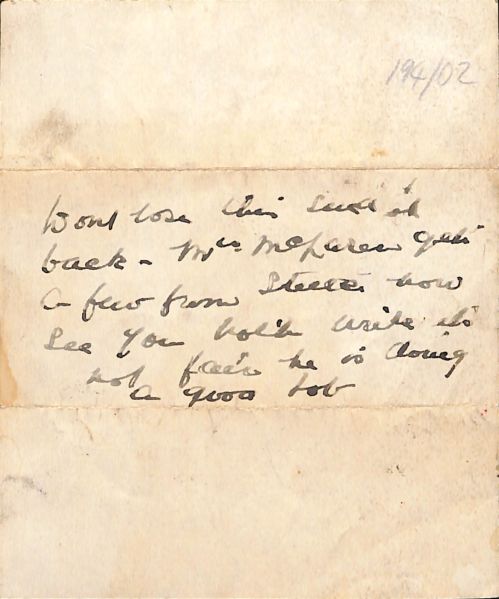 194/02
Dont lose this send it
back - Mrs McLaren gets
a few from Steele now
see you both write its
not fair he is doing
a good job